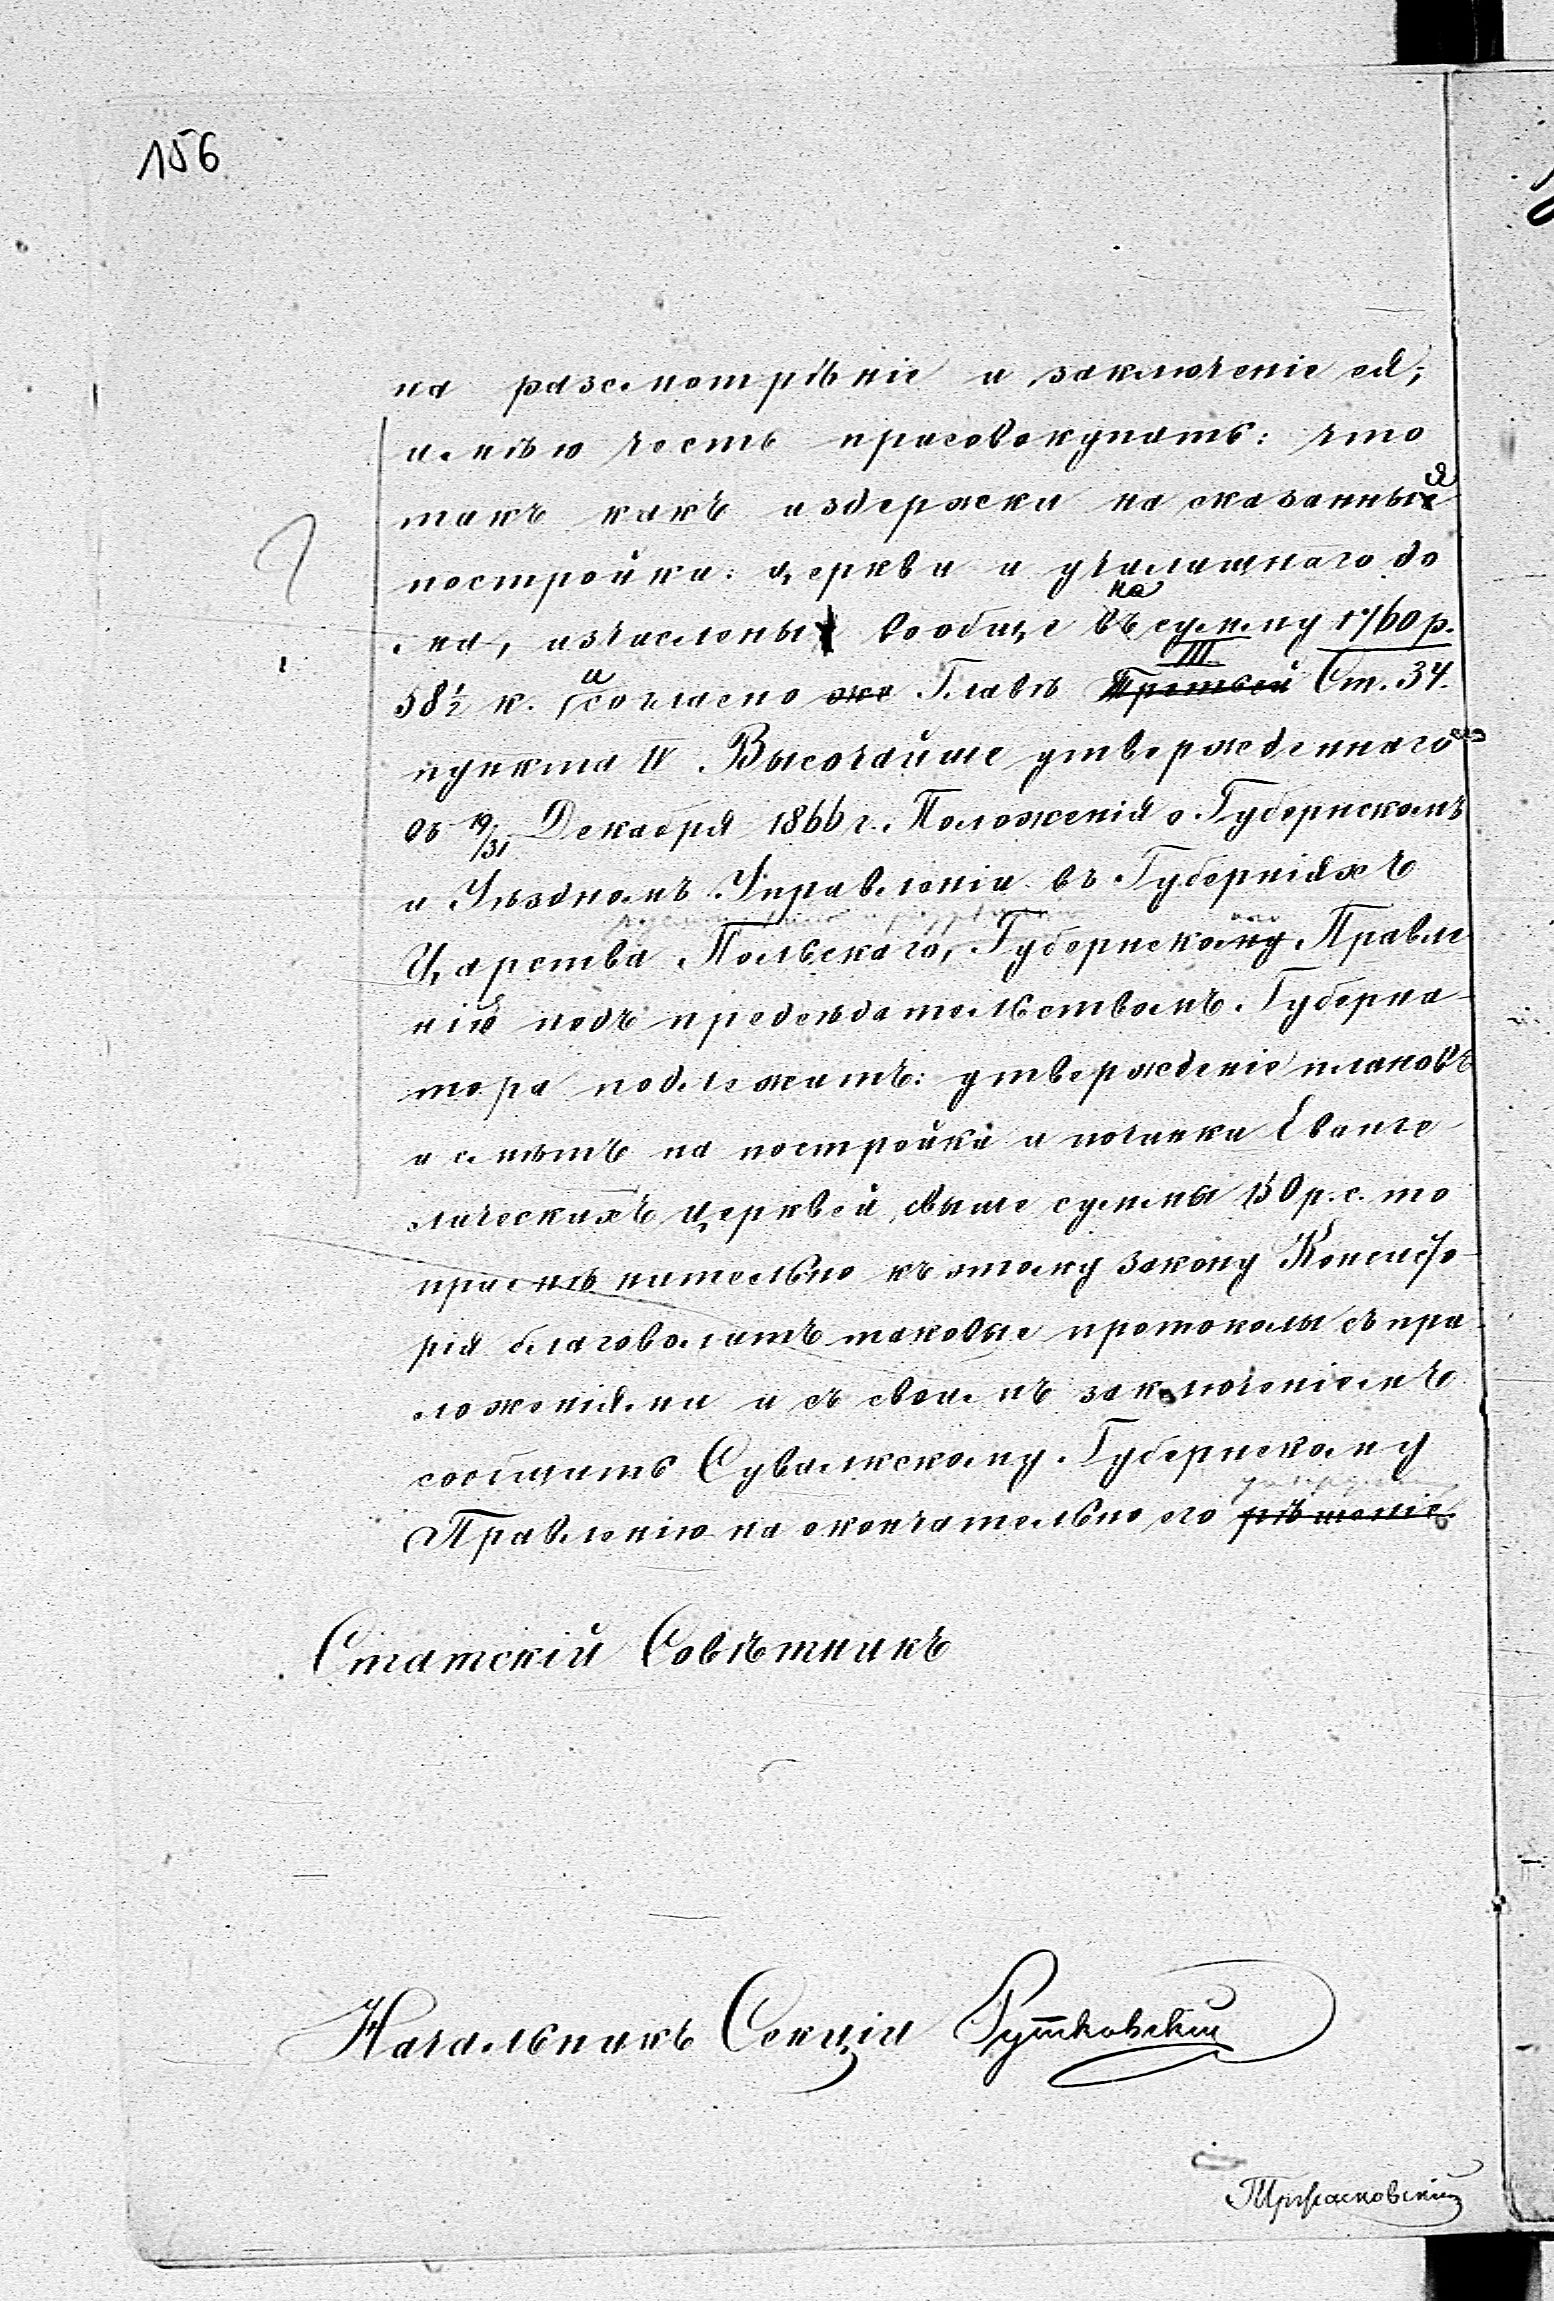 156
на разсмотрѣніе и заключеніе ея;
имѣю честь присовокупить: что
такъ какъ издержки на сказанныя
постройки: церкви и училищнаго до
ма, изчислены вообще на сумму 1760 р.
58½ к. и согласно же Главѣ III Третьей Ст. 34.
пункта IV Высочайше утвержденнаго
въ 19/31 Декабря 1866 г. Положенія о Губернскомъ
и Уѣздномъ Управленіи въ Губерніяхъ
Царства Польскаго, Губернскому Правле
нію подъ предсѣдательствомъ Губерна-
тора подлежитъ: утвержденіе плановъ
и смѣтъ на постройки и починки Еванге-
лическихъ церквей, свыше суммы 150 р. с. то
примѣнительно къ этому закону Консисто-
рія благоволитъ таковые протоколы съ при
ложеніями и съ своимъ заключеніемъ
сообщить Сувалкскому Губернскому
Правленію на окончательно его рѣшеніе.
Статскій Совѣтникъ
Начальникъ Секціи Рутковскій